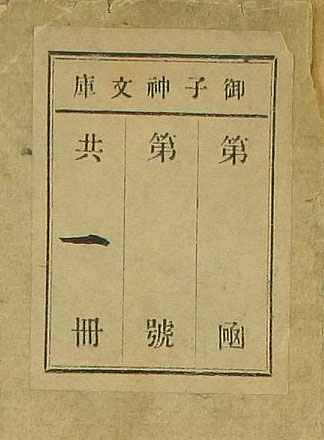 御子神文庫
第 函
第 號
共 一 冊